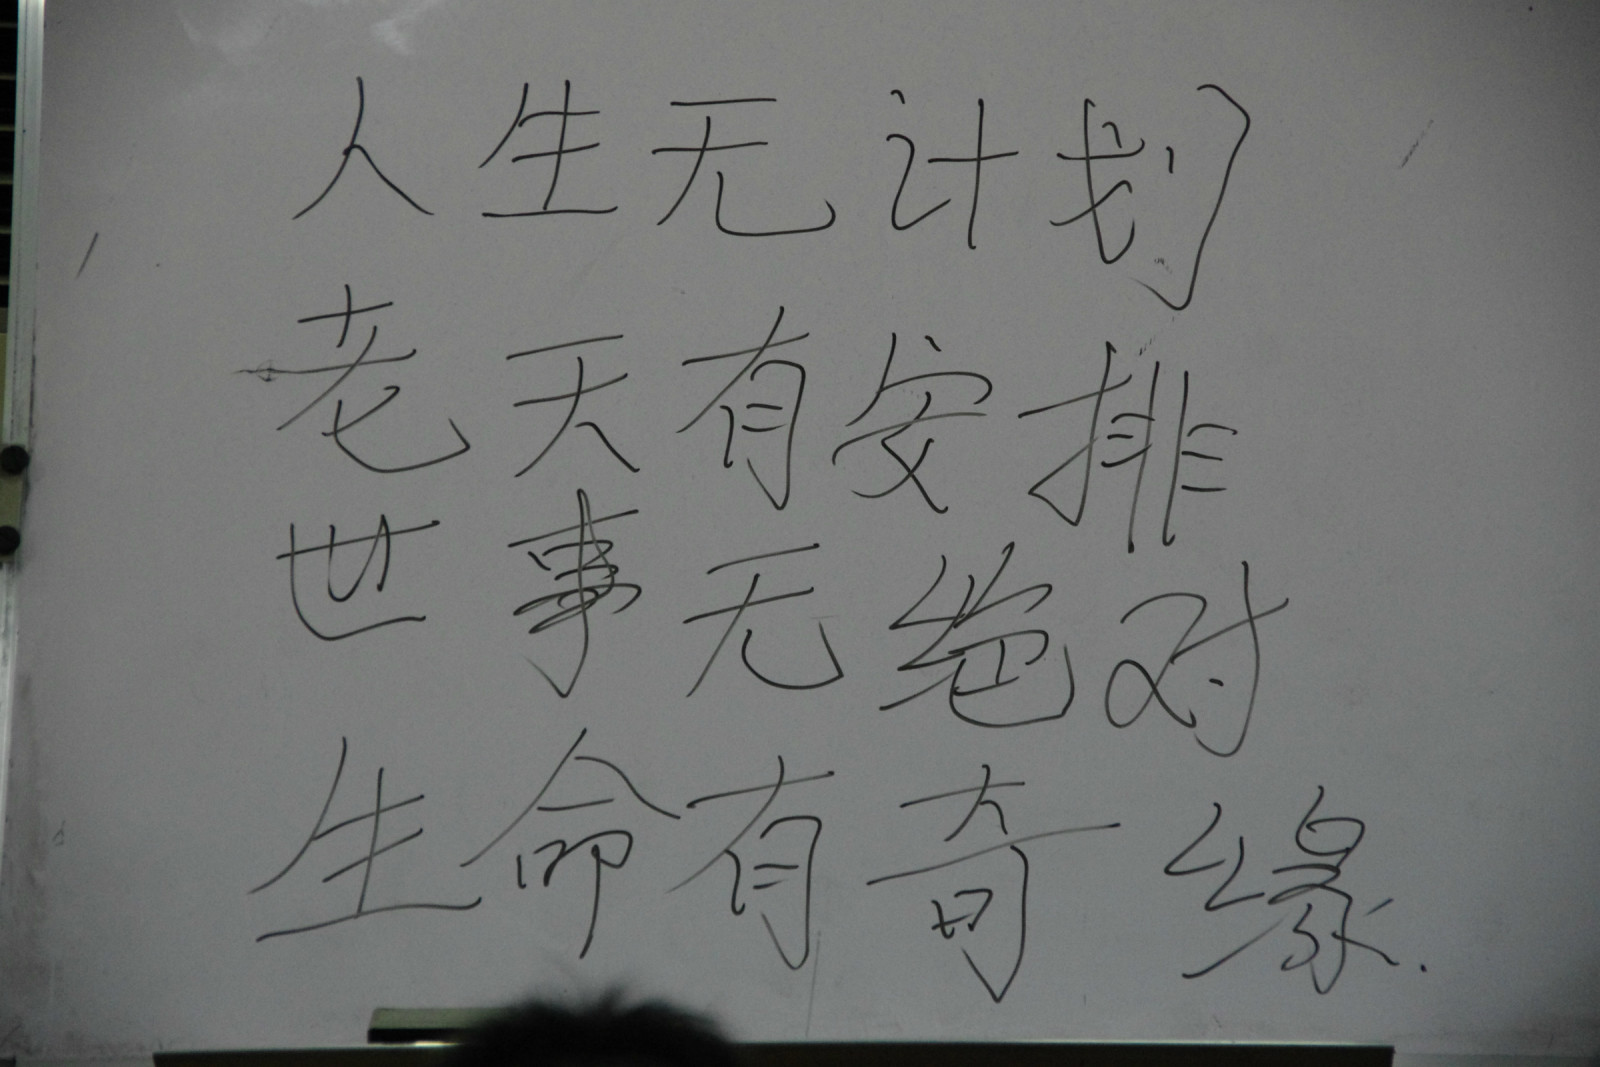 人生无计划
老天有安排
世事无绝对
生命有奇缘.